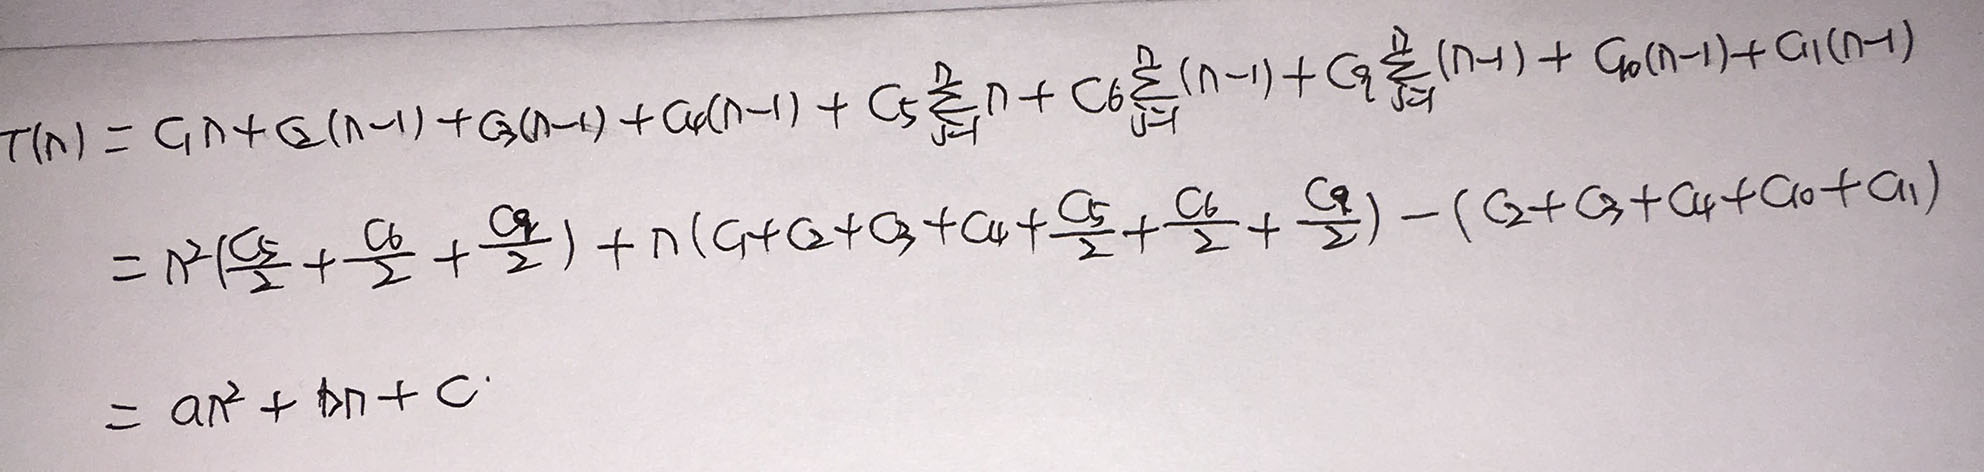 T(n) = C₁n + C₂(n-1) + C₃(n-1) + C₄(n-1) + C₅ ∑_{j=1}^{n} n + C₆ ∑_{j=1}^{n} (n-1) + C₉ ∑_{j=1}^{n} (n-1) + C₁₀(n-1) + C₁₁(n-1)
= n²(C₅/2 + C₆/2 + C₉/2) + n(C₁+C₂+C₃+C₄+C₅/2+C₆/2+C₉/2) - (C₂+C₃+C₄+C₁₀+C₁₁)
= an² + bn + c.